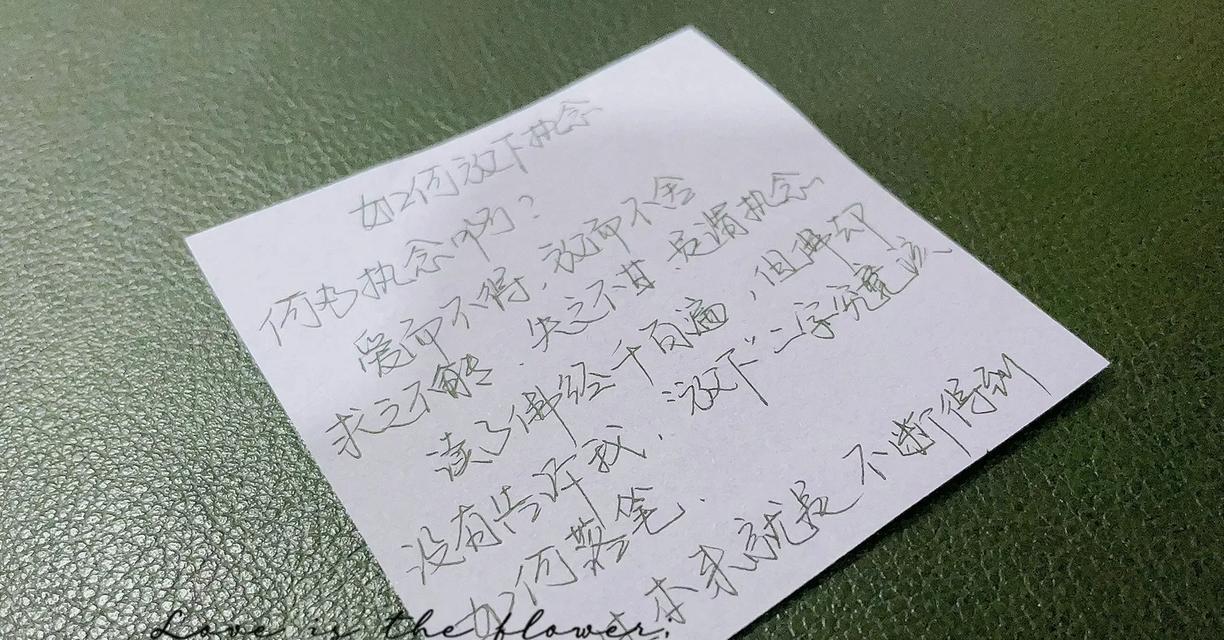 如何放下执念
何为执念啊?
爱而不得、放而不舍
求之不能、失之不甘、是谓执念
读了佛经千百遍,但佛却
没有告诉我,“放下”二字究竟该
如何落笔.
本来就是不断得到
Love is the flower;